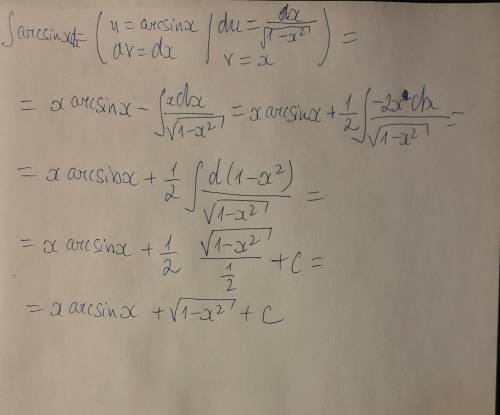 ∫arcsinxdx= ( u = arcsinx | du = dx/√(1-x²) ) =
( dv = dx | v = x )
= x arcsinx - ∫ xdx/√(1-x²) = x arcsinx + 1/2 ∫ -2x dx/√(1-x²) =
= x arcsinx + 1/2 ∫ d(1-x²)/√(1-x²) =
= x arcsinx + 1/2 √(1-x²)/(1/2) + C =
= x arcsinx + √(1-x²) + C